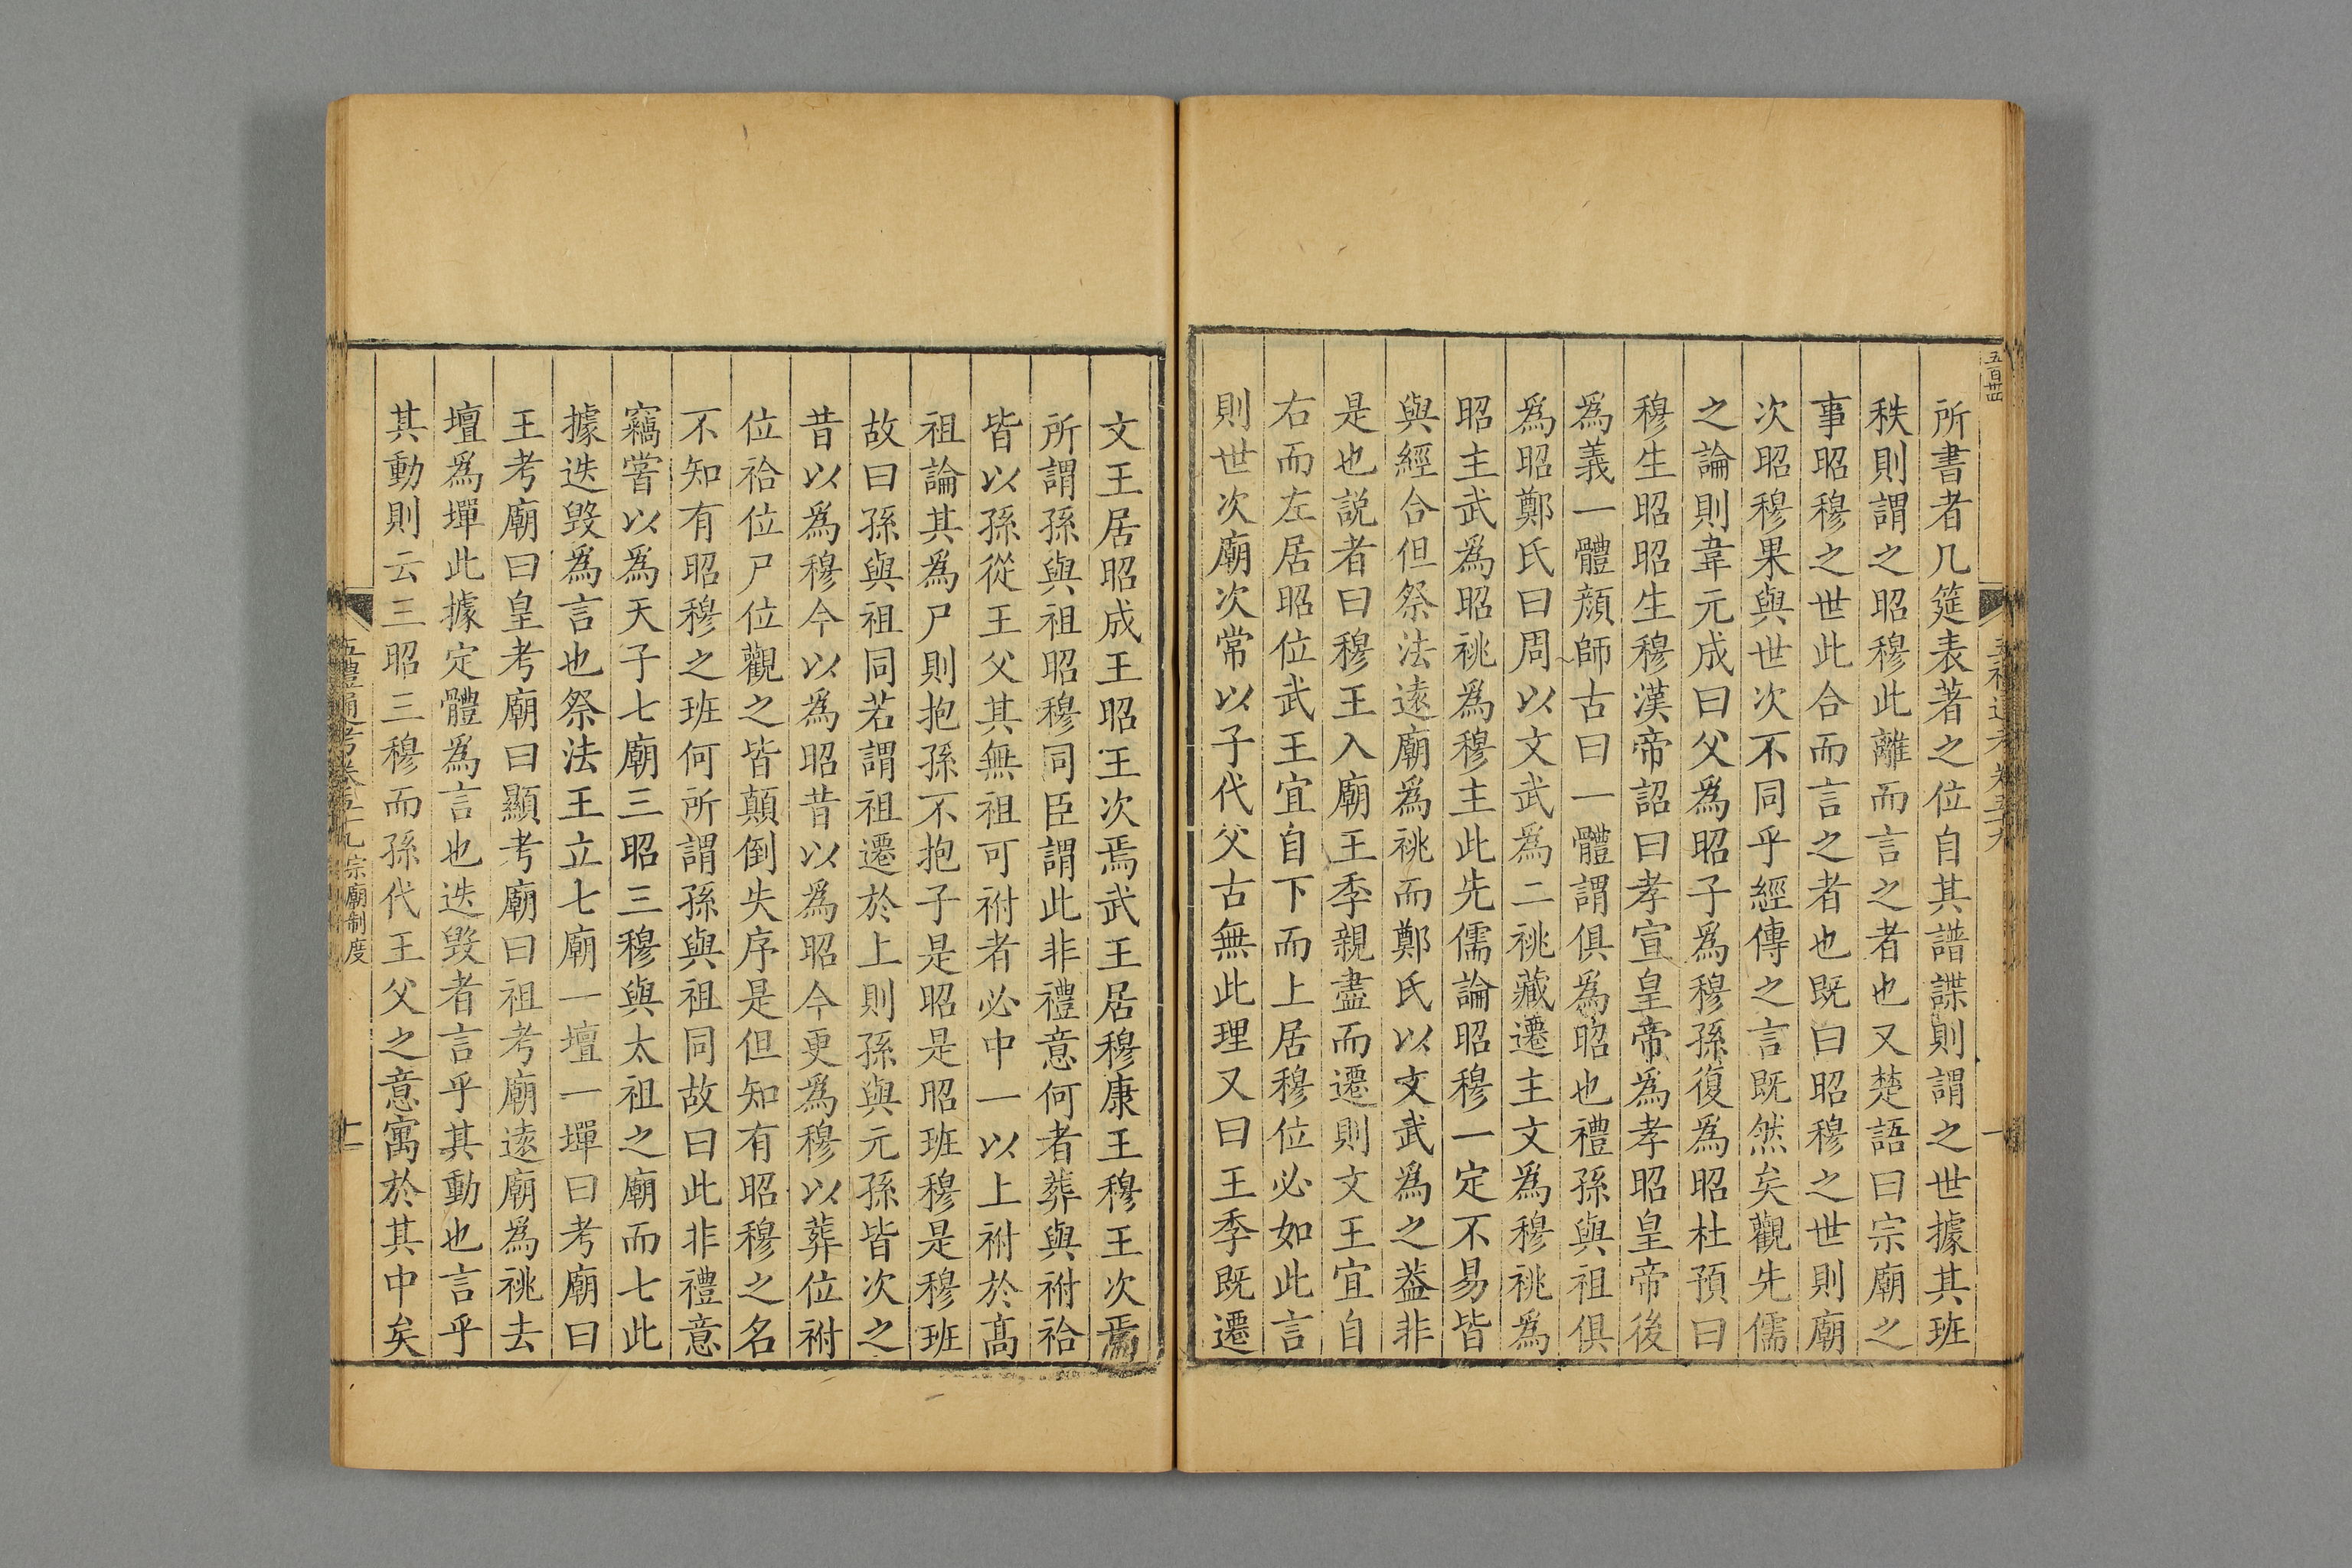 五百卌
五禮通考卷五十九
所書者几筵表著之位自其譜諜則謂之世據其班
秩則謂之昭穆此離而言之者也又楚語曰宗廟之
事昭穆之世此合而言之者也既曰昭穆之世則廟
次昭穆果與世次不同乎經傳之言既然矣觀先儒
之論則韋元成曰父爲昭子爲穆孫復爲昭杜預曰
穆生昭昭生穆漢帝詔曰孝宣皇帝爲孝昭皇帝後
爲義一體顔師古曰一體謂俱爲昭也禮孫與祖俱
爲昭鄭氏曰周以文武爲二祧藏遷主文爲穆祧爲
昭主武爲昭祧爲穆主此先儒論昭穆一定不易皆
與經合但祭法逺廟爲祧而鄭氏以文武爲之葢非
是也説者曰穆王入廟王季親盡而遷則文王宜自
右而左居昭位武王宜自下而上居穆位必如此言
則世次廟次常以子代父古無此理又曰王季既遷
文王居昭成王昭王次焉武王居穆康王穆王次焉
所謂孫與祖昭穆同臣謂此非禮意何者葬與祔祫
皆以孫從王父其無祖可祔者必中一以上祔於髙
祖論其爲尸則抱孫不抱子是昭是昭班穆是穆班
故曰孫與祖同若謂祖遷於上則孫與元孫皆次之
昔以爲穆今以爲昭昔以爲昭今更爲穆以葬位祔
位祫位尸位觀之皆顛倒失序是但知有昭穆之名
不知有昭穆之班何所謂孫與祖同故曰此非禮意
竊嘗以爲天子七廟三昭三穆與太祖之廟而七此
據迭毀爲言也祭法王立七廟一壇一墠曰考廟曰
王考廟曰皇考廟曰顯考廟曰祖考廟逺廟爲祧去
壇爲墠此據定體爲言也迭毀者言乎其動也言乎
其動則云三昭三穆而孫代王父之意寓於其中矣
五禮通考卷五十九宗廟制度